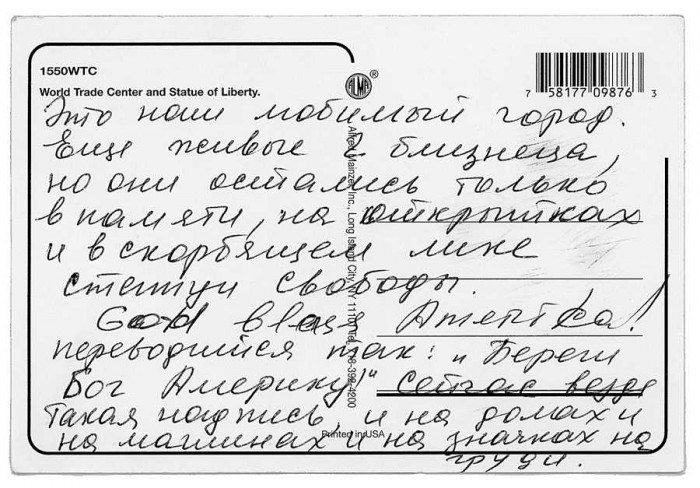 1550WTC
World Trade Center and Statue of Liberty.
ALMA ®
7 58177 09876 3
Это наш любимый город.
Еще живые 2 близнеца,
но они остались только
в памяти, на открытках
и в скорбящем лике
статуи свободы.
Good bless America!
переводится так: "Береги
Бог Америку!" Сейчас везде
такая надпись, и на домах и
на машинах и на значках на
груди.
Alfred Mainzer, Inc., Long Island City, NY 11101 Tel. 718-392-4200
Printed in USA